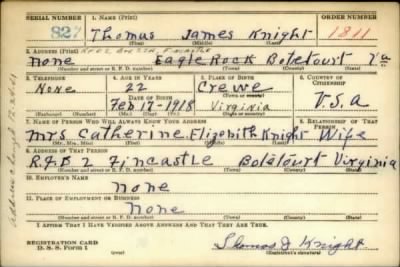 SERIAL NUMBER 1. NAME (Print) ORDER NUMBER
827 Thomas James Knight 1811
(First) (Middle) (Last)
2. ADDRESS (Print) Fincastle
None Eagle Rock Botetourt Va
(Number and street or R. F. D. number) (Town) (County) (State)
3. TELEPHONE 4. AGE IN YEARS 5. PLACE OF BIRTH 6. COUNTRY OF CITIZENSHIP
None 22 Crewe
DATE OF BIRTH (Town or county)
Feb 17-1918 Virginia U.S.A
(Exchange) (Number) (Mo.) (Day) (Yr.) (State or country)
7. NAME OF PERSON WHO WILL ALWAYS KNOW YOUR ADDRESS 8. RELATIONSHIP OF THAT PERSON
Mrs Catherine Elizebith Knight Wife
(Mr., Mrs., Miss) (First) (Middle) (Last)
9. ADDRESS OF THAT PERSON
RFD 2 Fincastle Botetourt Virginia
(Number and street or R. F. D. number) (Town) (County) (State)
10. EMPLOYER'S NAME
none
11. PLACE OF EMPLOYMENT OR BUSINESS
none
(Number and street or R. F. D. number) (Town) (County) (State)
I AFFIRM THAT I HAVE VERIFIED ABOVE ANSWERS AND THAT THEY ARE TRUE.
REGISTRATION CARD
D. S. S. Form 1 Thomas J Knight
(Registrant's signature)